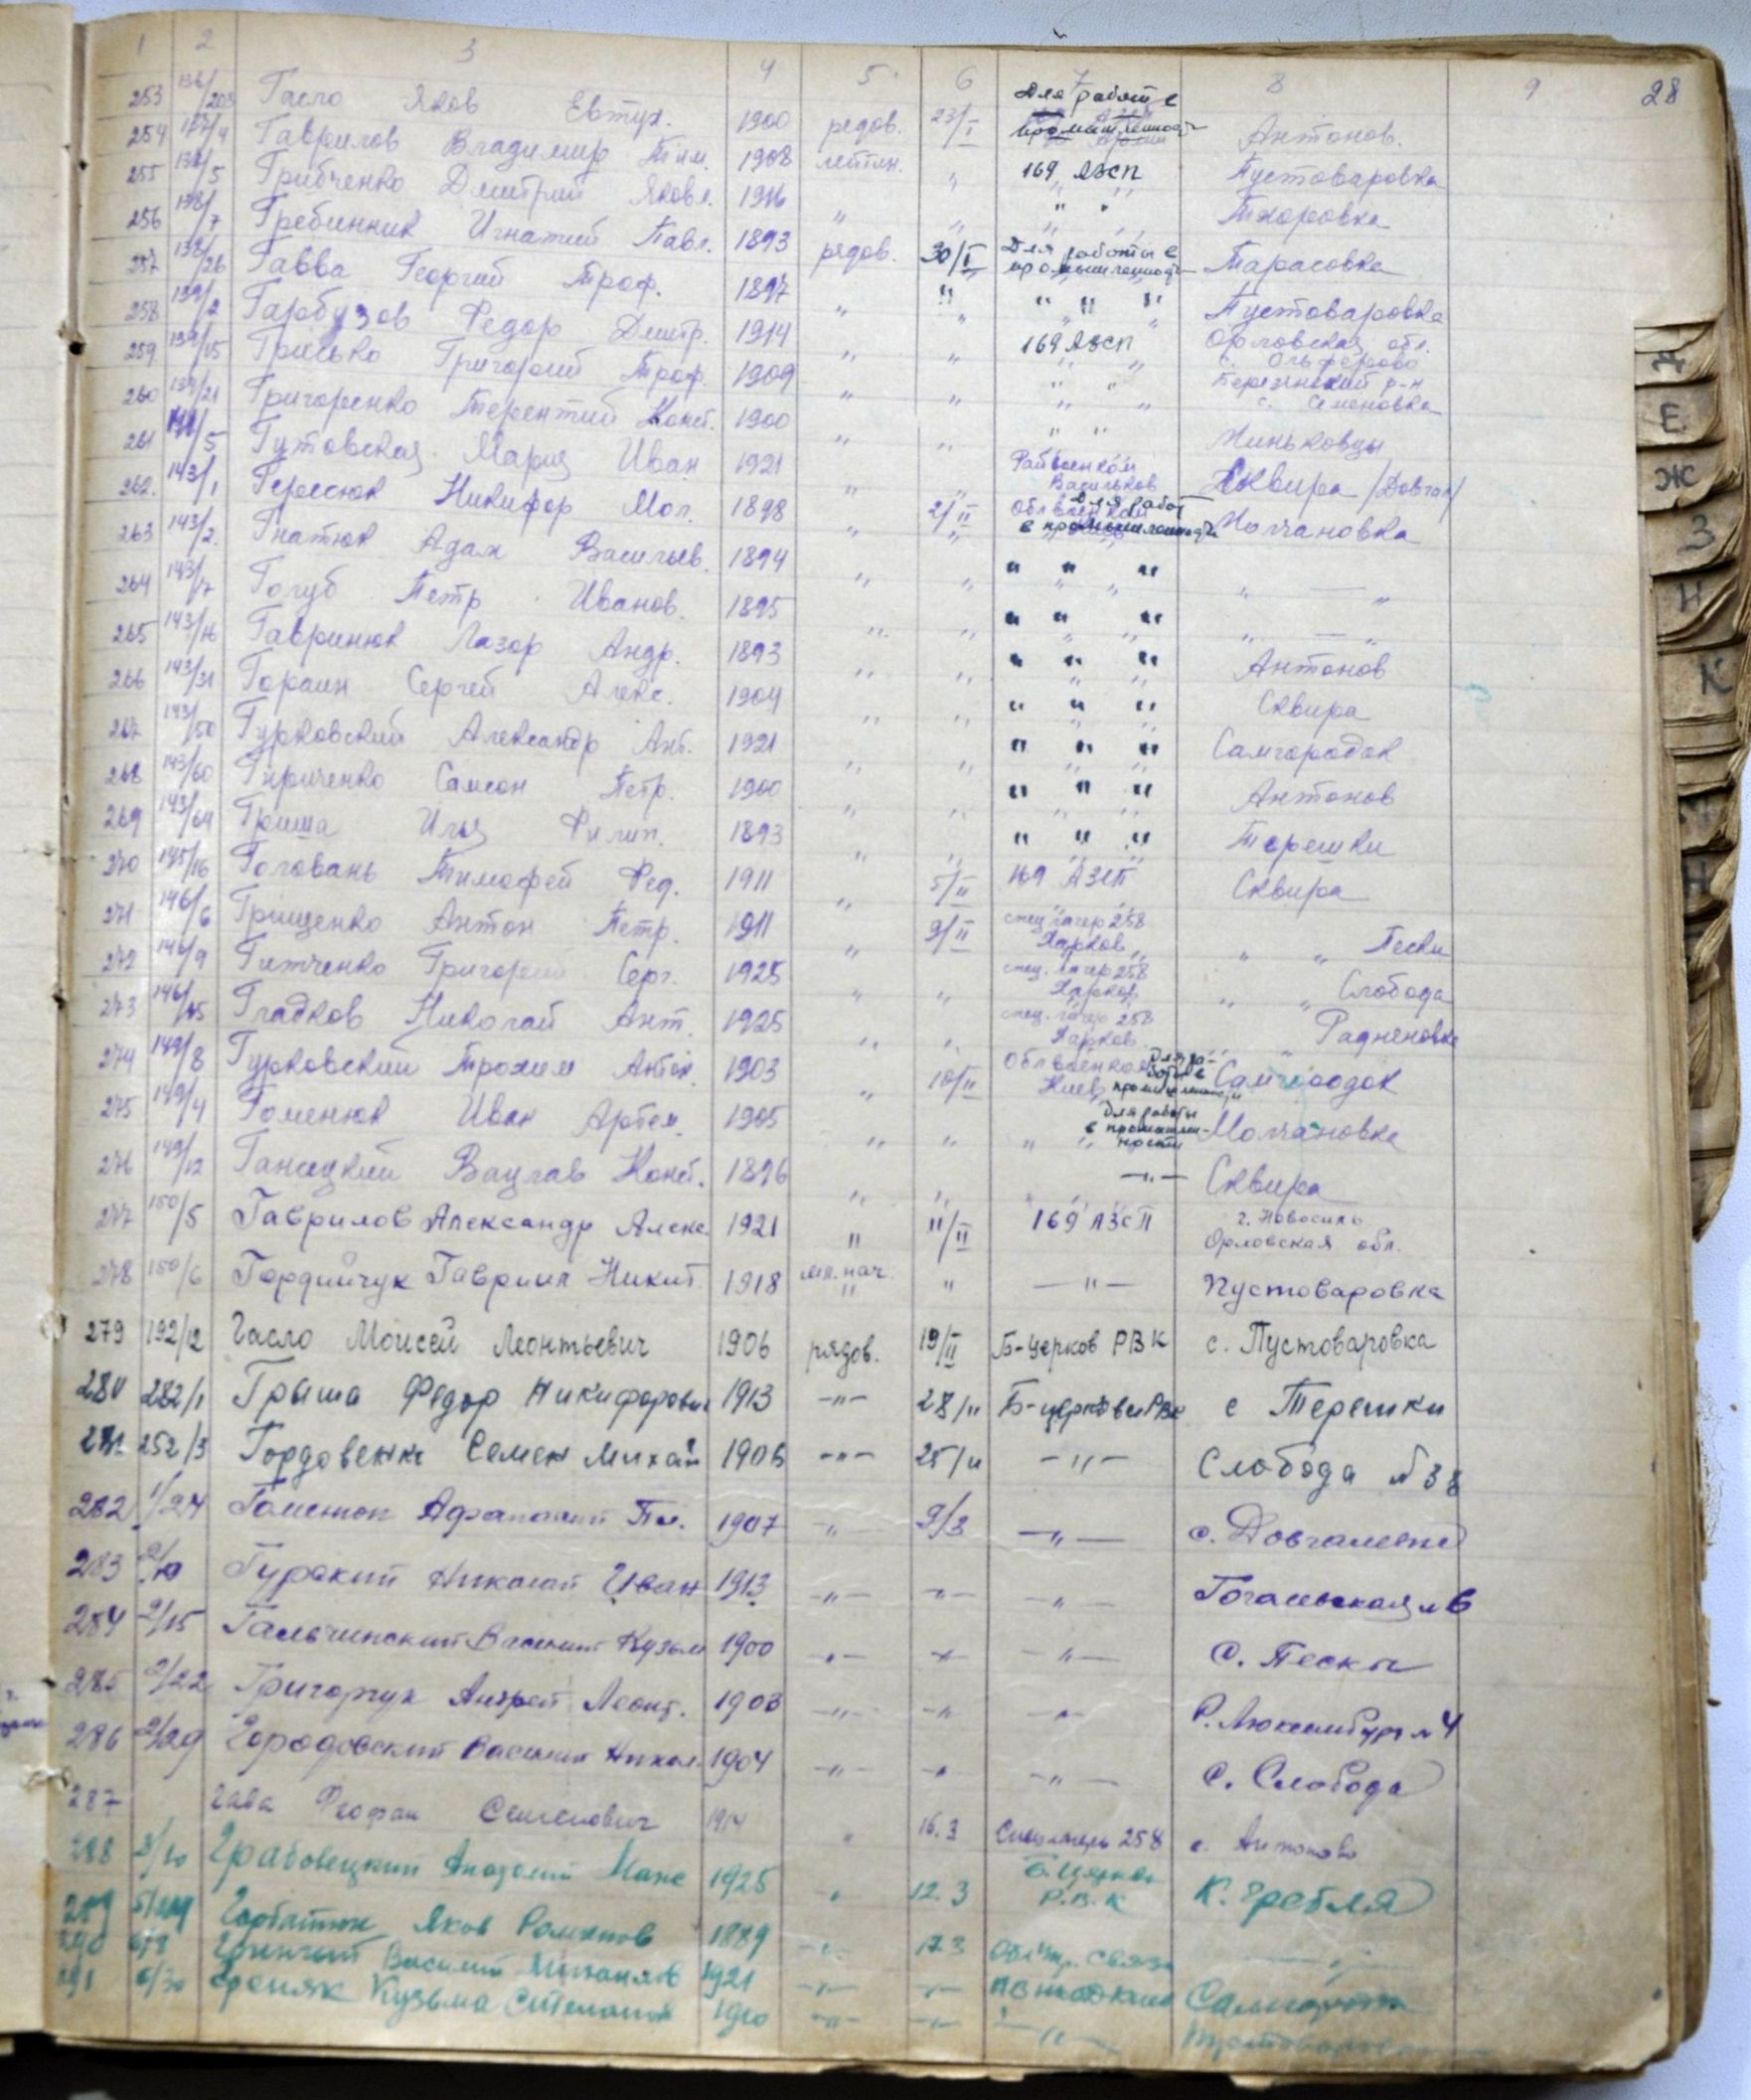 1 2 3 4 5 6 7 8 9 28
253 136/203 Гасло Яков Евтух. 1900 редов. 23/I Для работ в промышленност Антонов.
254 137/4 Гаврилов Владимир Тим. 1908 лейтен. " 169 АЗСП Пустоваровка
255 138/5 Грибченко Дмитрий Яковл. 1916 " " " " Тхоровка
256 138/7 Гребинник Игнатий Павл. 1893 рядов. 30/I Для работы в промышленност Тарасовка
257 138/26 Гавва Георгий Троф. 1897 " " " " " Пустоваровка
258 139/2 Гарбузов Федор Дмитр. 1914 " " 169 АЗСП Орловская обл. с. Ольферово
259 139/15 Грисько Григорий Троф. 1909 " " " " Березнский р-н с. Семеновка
260 139/21 Григоренко Терентий Конст. 1900 " " " " Чиньковцы
261 141/5 Гутовская Мария Иван 1921 " " Райвоенком Васильков Сквира /Довгал/
262. 143/1 Гереснюк Никифор Мол. 1898 " 2/II Облвоенком для работ в промышленность Молчановка
263 143/2. Гнатюк Адам Васильев. 1894 " " " " " " — "
264 143/7 Голуб Петр Иванов. 1895 " " " " " " — "
265 143/16 Гавринюк Лазор Андр. 1893 " " " " " Антонов
266 143/31 Гораин Сергей Алекс. 1904 " " " " " Сквира
267 143/50 Гурковский Александр Ант. 1921 " " " " " Самгородок
268 143/60 Гириченко Самсон Петр. 1900 " " " " " Антонов
269 143/64 Гриша Илья Филип. 1893 " " " " " Терешки
270 145/16 Головань Тимофей Фед. 1911 " 5/II 169 АЗСП Сквира
271 146/6 Грищенко Антон Петр. 1911 " 9/II спец лагер 258 Харков " " Пески
272 146/9 Гитченко Григорий Серг. 1925 " " спец. лагер 258 Харков " " Слобода
273 146/15 Гладков Николай Ант. 1925 " " спец. лагер 258 Харков " " Радненовка
274 149/8 Гурковский Трохим Антон. 1903 " 10/II Облвоенком Киев для работ в промышленности Самгородок
275 149/4 Гоменюк Иван Артем. 1905 " " " " для работы в промышленности Молчановка
276 149/12 Ганицкий Вацлав Конст. 1896 " " —"— Сквира
277 150/5 Гаврилов Александр Алекс. 1921 " 11/II 169 АЗСП г. Новосиль Орловская обл.
278 150/6 Гордийчук Гавриил Никит. 1918 мл. нач. " " —"— Пустоваровка
279 192/12 Гасло Моисей Леонтьевич 1906 рядов. 19/II Б-Церков РВК с. Пустоваровка
280 282/1 Грыша Федор Никифорович 1913 -"- 28/II Б-церковс РВК с Терешки
281 252/3 Гордовенко Семен Михай 1906 -"- 25/II -"- Слобода №38
282 1/24 Афанасий 1907 -"- 9/3 -"-
283 Гурский Николай Иван 1913 -"- -"- -"- Гогалевская №6
284 2/15 Гальчинский Василий Кузьм 1900 -"- -"- -"- С. Пески
285 2/22 Григорчук Андрей Леонт. 1908 -"- -"- -"- Р. Люксембург №4
286 2/29 Городовский Василий Никол. 1904 -"- -"- -"- С. Слобода
287 Гава Феофан Семенович 1914 " 16.3 Спецлагерь 258 с. Антонов
288 3/10 Грабовецкий Анатолий Макс 1925 " 12.3 Б. Церков Р.В.К К. Гребля
289 Горбатюк Яков Романов 1889 -"- 17.3 связи
290 Василий 1921 -"- -"-
291 6/30 Кузьма 1910 -"- -"- -"-
Е
Ж
З
К